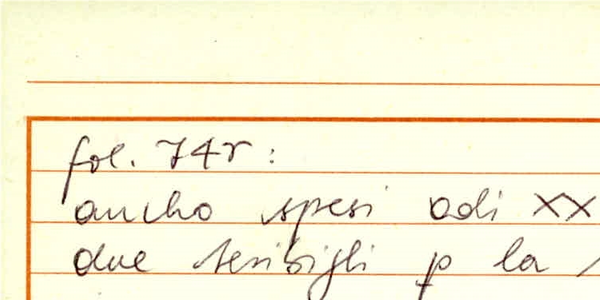 fol. 74r:
ancho spesi adi XX
due seribigli p la